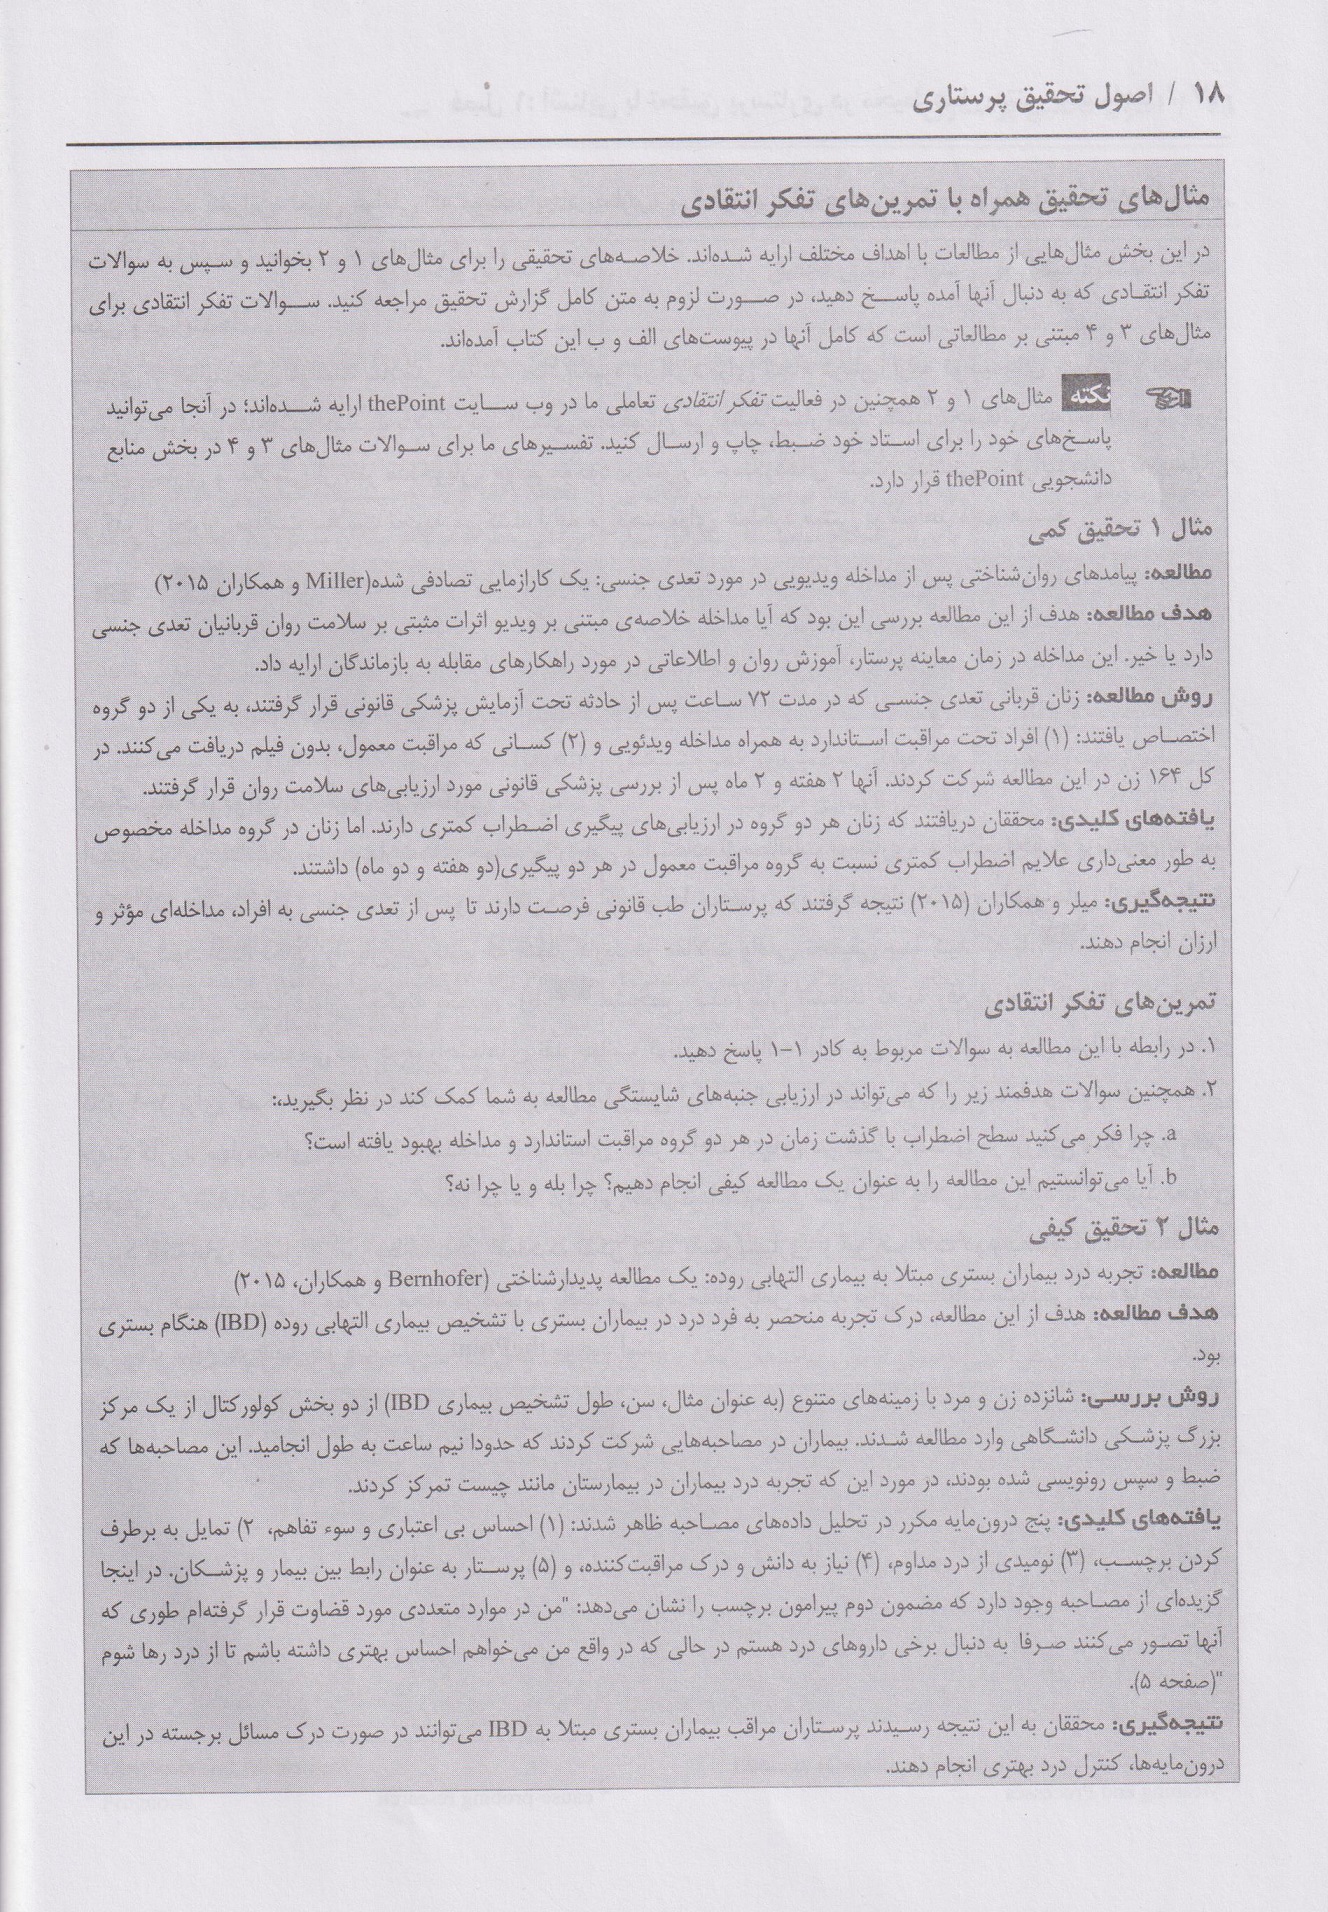 ۱۸ / اصول تحقیق پرستاری
مثال‌های تحقیق همراه با تمرین‌های تفکر انتقادی
در این بخش مثال‌هایی از مطالعات با اهداف مختلف ارایه شده‌اند. خلاصه‌های تحقیقی را برای مثال‌های ۱ و ۲ بخوانید و سپس به سوالات
تفکر انتقادی که به دنبال آنها آمده پاسخ دهید، در صورت لزوم به متن کامل گزارش تحقیق مراجعه کنید. سوالات تفکر انتقادی برای
مثال‌های ۳ و ۴ مبتنی بر مطالعاتی است که کامل آنها در پیوست‌های الف و ب این کتاب آمده‌اند.
نکته مثال‌های ۱ و ۲ همچنین در فعالیت تفکر انتقادی تعاملی ما در وب سایت thePoint ارایه شده‌اند؛ در آنجا می‌توانید
پاسخ‌های خود را برای استاد خود ضبط، چاپ و ارسال کنید. تفسیرهای ما برای سوالات مثال‌های ۳ و ۴ در بخش منابع
دانشجویی thePoint قرار دارد.
مثال ۱ تحقیق کمی
مطالعه: پیامدهای روان‌شناختی پس از مداخله ویدیویی در مورد تعدی جنسی: یک کارازمایی تصادفی شده(Miller و همکاران ۲۰۱۵)
هدف مطالعه: هدف از این مطالعه بررسی این بود که آیا مداخله خلاصه‌ی مبتنی بر ویدیو اثرات مثبتی بر سلامت روان قربانیان تعدی جنسی
دارد یا خیر. این مداخله در زمان معاینه پرستار، آموزش روان و اطلاعاتی در مورد راهکارهای مقابله به بازماندگان ارایه داد.
روش مطالعه: زنان قربانی تعدی جنسی که در مدت ۷۲ ساعت پس از حادثه تحت آزمایش پزشکی قانونی قرار گرفتند، به یکی از دو گروه
اختصاص یافتند: (۱) افراد تحت مراقبت استاندارد به همراه مداخله ویدئویی و (۲) کسانی که مراقبت معمول، بدون فیلم دریافت می‌کنند. در
کل ۱۶۴ زن در این مطالعه شرکت کردند. آنها ۲ هفته و ۲ ماه پس از بررسی پزشکی قانونی مورد ارزیابی‌های سلامت روان قرار گرفتند.
یافته‌های کلیدی: محققان دریافتند که زنان هر دو گروه در ارزیابی‌های پیگیری اضطراب کمتری دارند. اما زنان در گروه مداخله مخصوص
به طور معنی‌داری علایم اضطراب کمتری نسبت به گروه مراقبت معمول در هر دو پیگیری(دو هفته و دو ماه) داشتند.
نتیجه‌گیری: میلر و همکاران (۲۰۱۵) نتیجه گرفتند که پرستاران طب قانونی فرصت دارند تا پس از تعدی جنسی به افراد، مداخله‌ای مؤثر و
ارزان انجام دهند.
تمرین‌های تفکر انتقادی
۱. در رابطه با این مطالعه به سوالات مربوط به کادر ۱–۱ پاسخ دهید.
۲. همچنین سوالات هدفمند زیر را که می‌تواند در ارزیابی جنبه‌های شایستگی مطالعه به شما کمک کند در نظر بگیرید.،:
a. چرا فکر می‌کنید سطح اضطراب با گذشت زمان در هر دو گروه مراقبت استاندارد و مداخله بهبود یافته است؟
b. آیا می‌توانستیم این مطالعه را به عنوان یک مطالعه کیفی انجام دهیم؟ چرا بله و یا چرا نه؟
مثال ۲ تحقیق کیفی
مطالعه: تجربه درد بیماران بستری مبتلا به بیماری التهابی روده: یک مطالعه پدیدارشناختی (Bernhofer و همکاران، ۲۰۱۵)
هدف مطالعه: هدف از این مطالعه، درک تجربه منحصر به فرد درد در بیماران بستری با تشخیص بیماری التهابی روده (IBD) هنگام بستری
بود.
روش بررسی: شانزده زن و مرد با زمینه‌های متنوع (به عنوان مثال، سن، طول تشخیص بیماری IBD) از دو بخش کولورکتال از یک مرکز
بزرگ پزشکی دانشگاهی وارد مطالعه شدند. بیماران در مصاحبه‌هایی شرکت کردند که حدودا نیم ساعت به طول انجامید. این مصاحبه‌ها که
ضبط و سپس رونویسی شده بودند، در مورد این که تجربه درد بیماران در بیمارستان مانند چیست تمرکز کردند.
یافته‌های کلیدی: پنج درون‌مایه مکرر در تحلیل داده‌های مصاحبه ظاهر شدند: (۱) احساس بی اعتباری و سوء تفاهم، ۲) تمایل به برطرف
کردن برچسب، (۳) نومیدی از درد مداوم، (۴) نیاز به دانش و درک مراقبت‌کننده، و (۵) پرستار به عنوان رابط بین بیمار و پزشکان. در اینجا
گزیده‌ای از مصاحبه وجود دارد که مضمون دوم پیرامون برچسب را نشان می‌دهد: "من در موارد متعددی مورد قضاوت قرار گرفته‌ام طوری که
آنها تصور می‌کنند صرفا به دنبال برخی داروهای درد هستم در حالی که در واقع من می‌خواهم احساس بهتری داشته باشم تا از درد رها شوم
"(صفحه ۵).
نتیجه‌گیری: محققان به این نتیجه رسیدند پرستاران مراقب بیماران بستری مبتلا به IBD می‌توانند در صورت درک مسائل برجسته در این
درون‌مایه‌ها، کنترل درد بهتری انجام دهند.